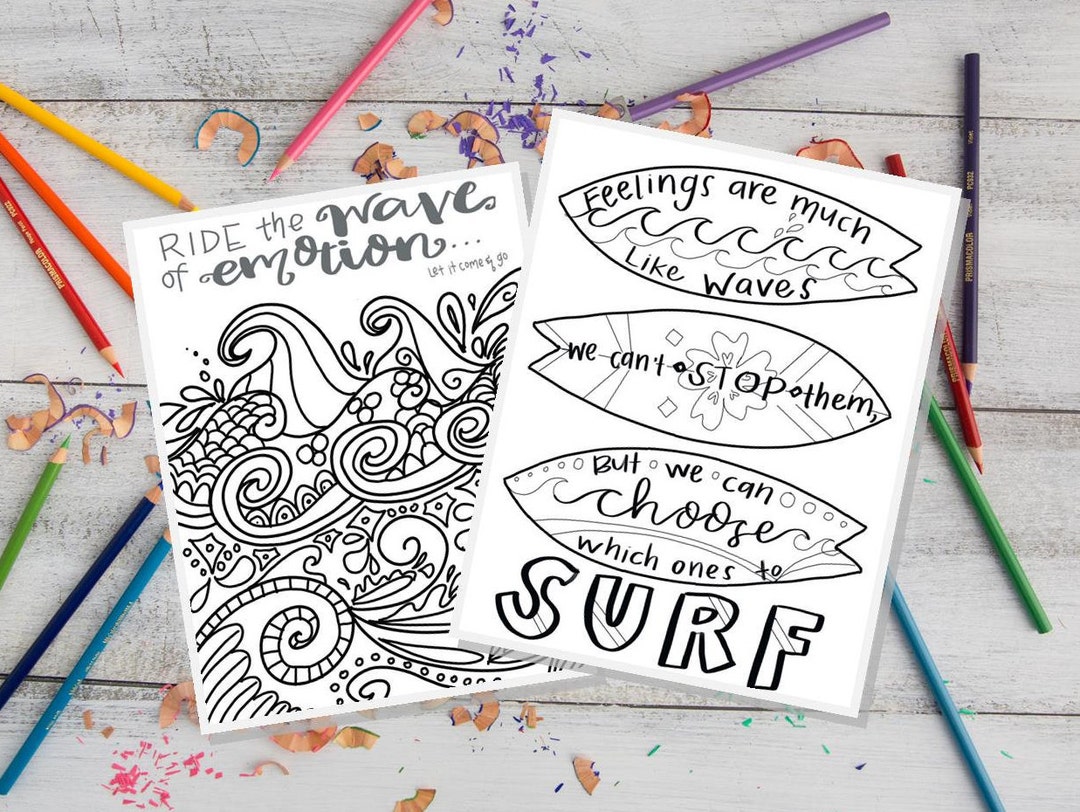 RIDE the wave
of emotion...
Let it come & go
Feelings are much
Like waves
we can't STOP them,
But we can
choose
which ones to
SURF
PRISMACOLOR
PRISMACOLOR
Violet PC932
PRISMACOLOR